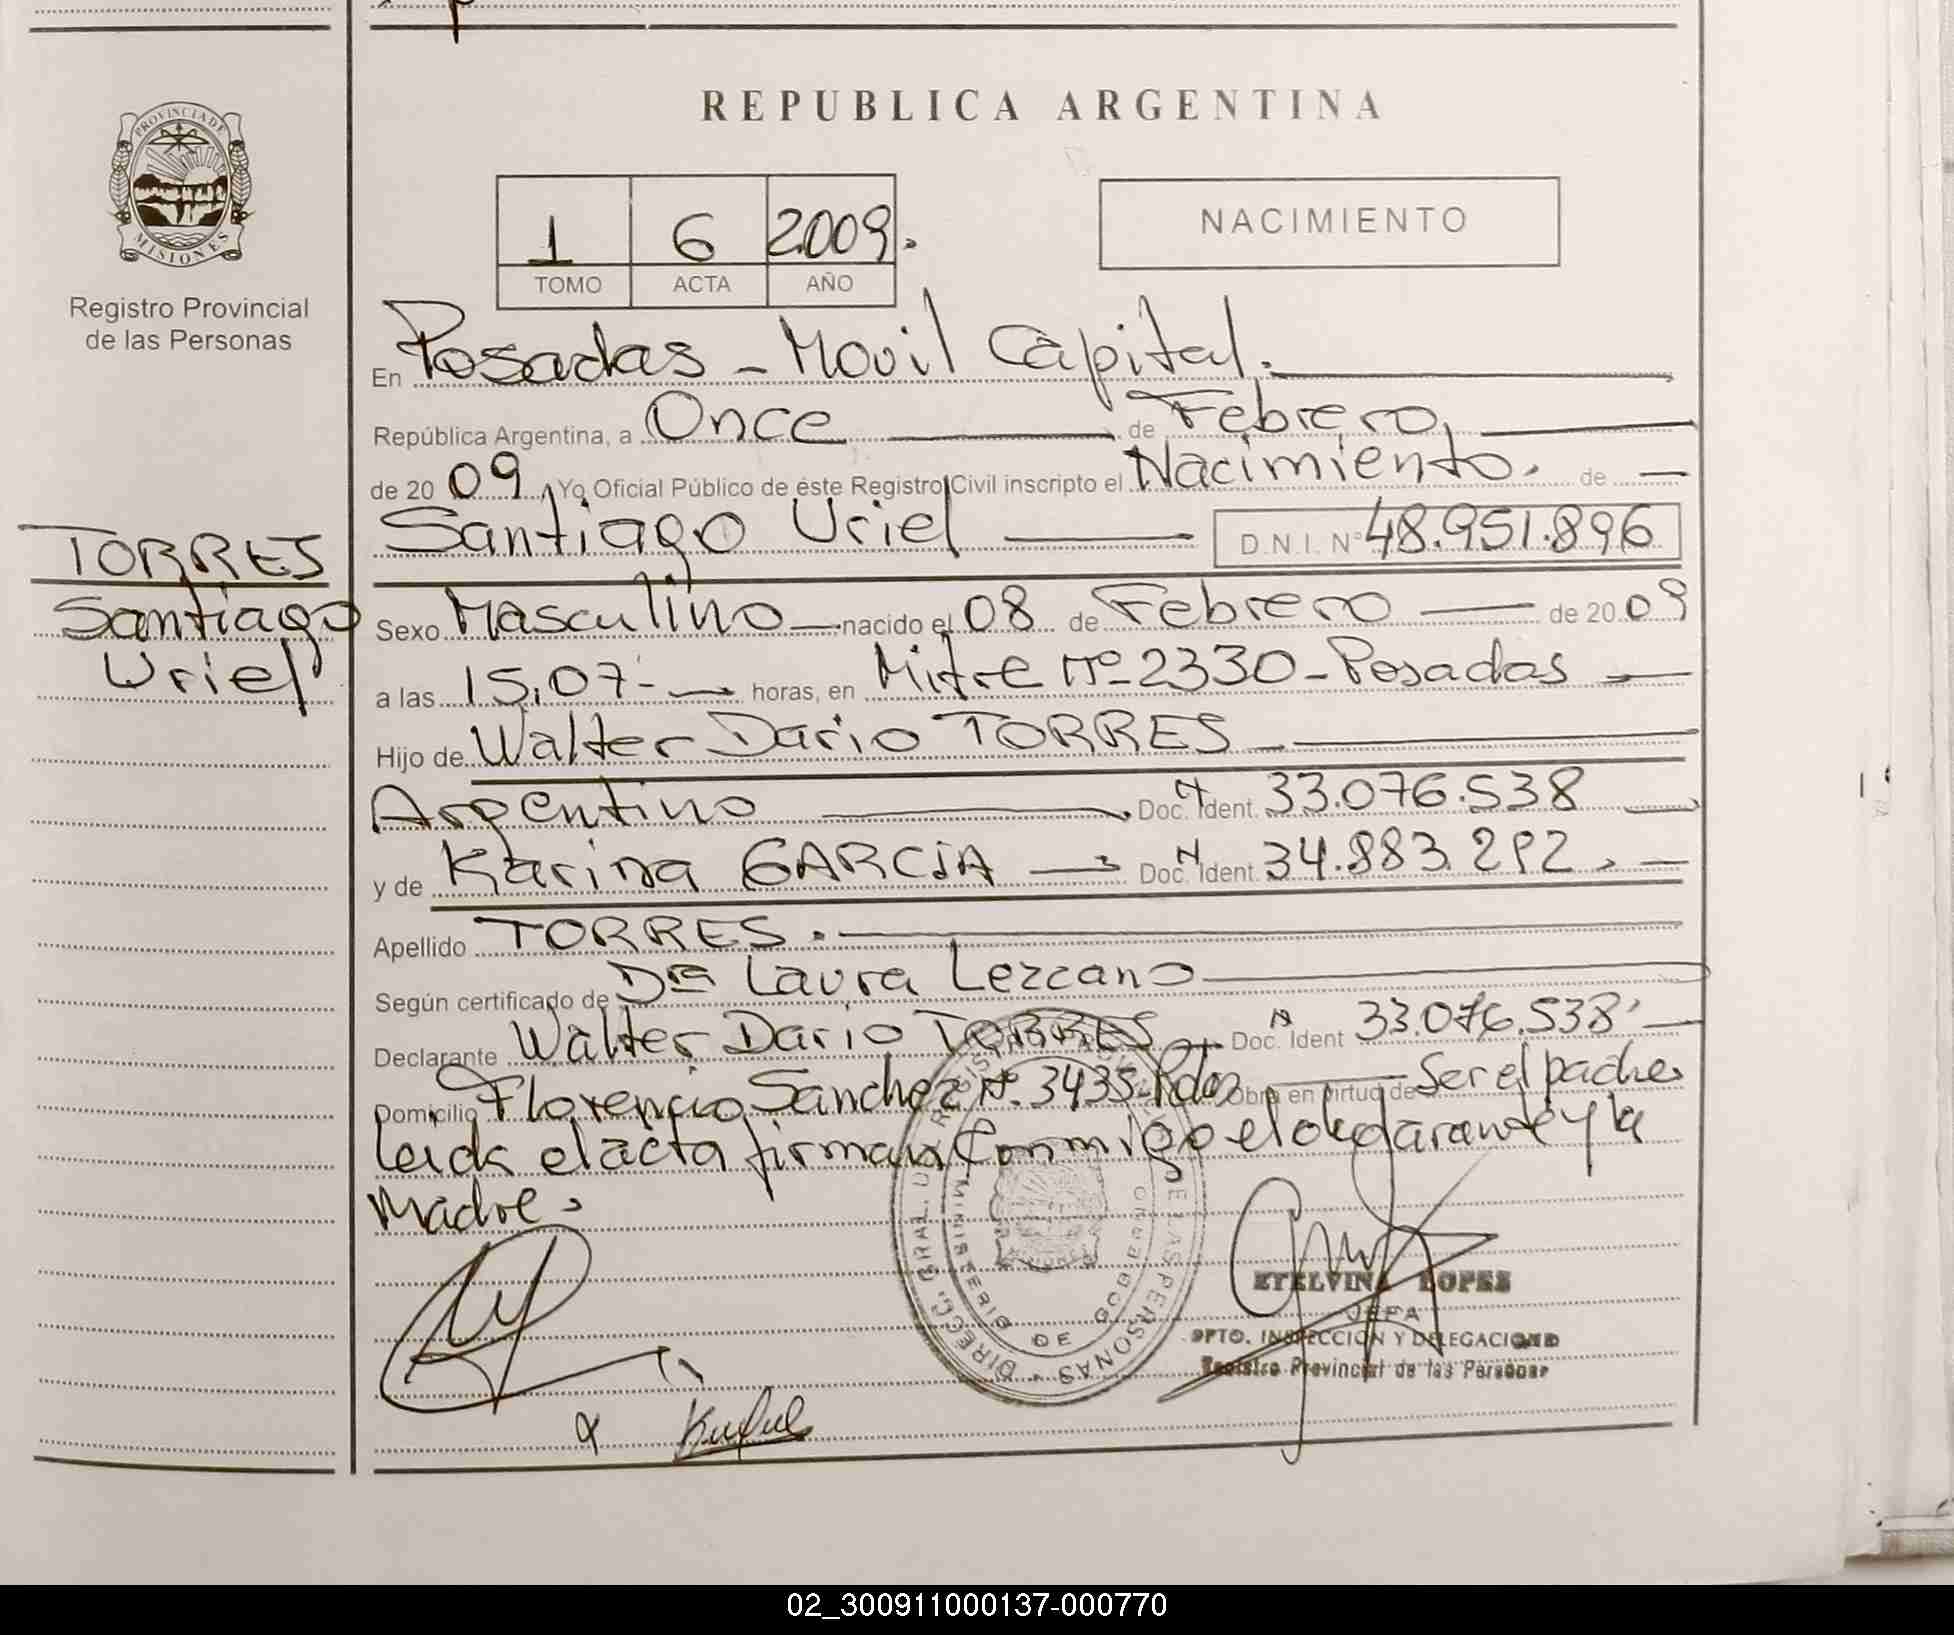 REPUBLICA ARGENTINA
PROVINCIA DE
MISIONES
Registro Provincial
de las Personas
1 6 2.009.
TOMO ACTA AÑO
NACIMIENTO
En Posadas - Movil Capital.
República Argentina, a Once de Febrero,
de 20 09, Yo Oficial Público de éste Registro Civil inscripto el Nacimiento. de
Santiago Uriel D.N.I. Nº 48.951.896
TORRES
Santiago
Uriel
Sexo Masculino nacido el 08 de Febrero de 20 09
a las 15,07- horas, en Mitre Nº 2330 - Posadas
Hijo de Walter Dario TORRES
Argentino Doc. N Ident. 33.076.538
y de Karina GARCIA Doc. N Ident. 34.883.292.
Apellido TORRES.
Según certificado de Dra Laura Lezcano
Declarante Walter Dario TORRES Doc. N Ident 33.076.538
Domicilio Florencio Sanchez Nº 3435 - Pdas Obra en virtud de Ser el padre.
Leida el acta firman Conmigo el declarante y la
Madre.
DIRECC. GRAL. DE REGISTRO PROVINCIAL DE LAS PERSONAS
MINISTERIO DE GOBIERNO
ETELVINA LOPES
JEFA
DPTO. INSPECCION Y DELEGACIONES
Registro Provincial de las Personas
02_300911000137-000770